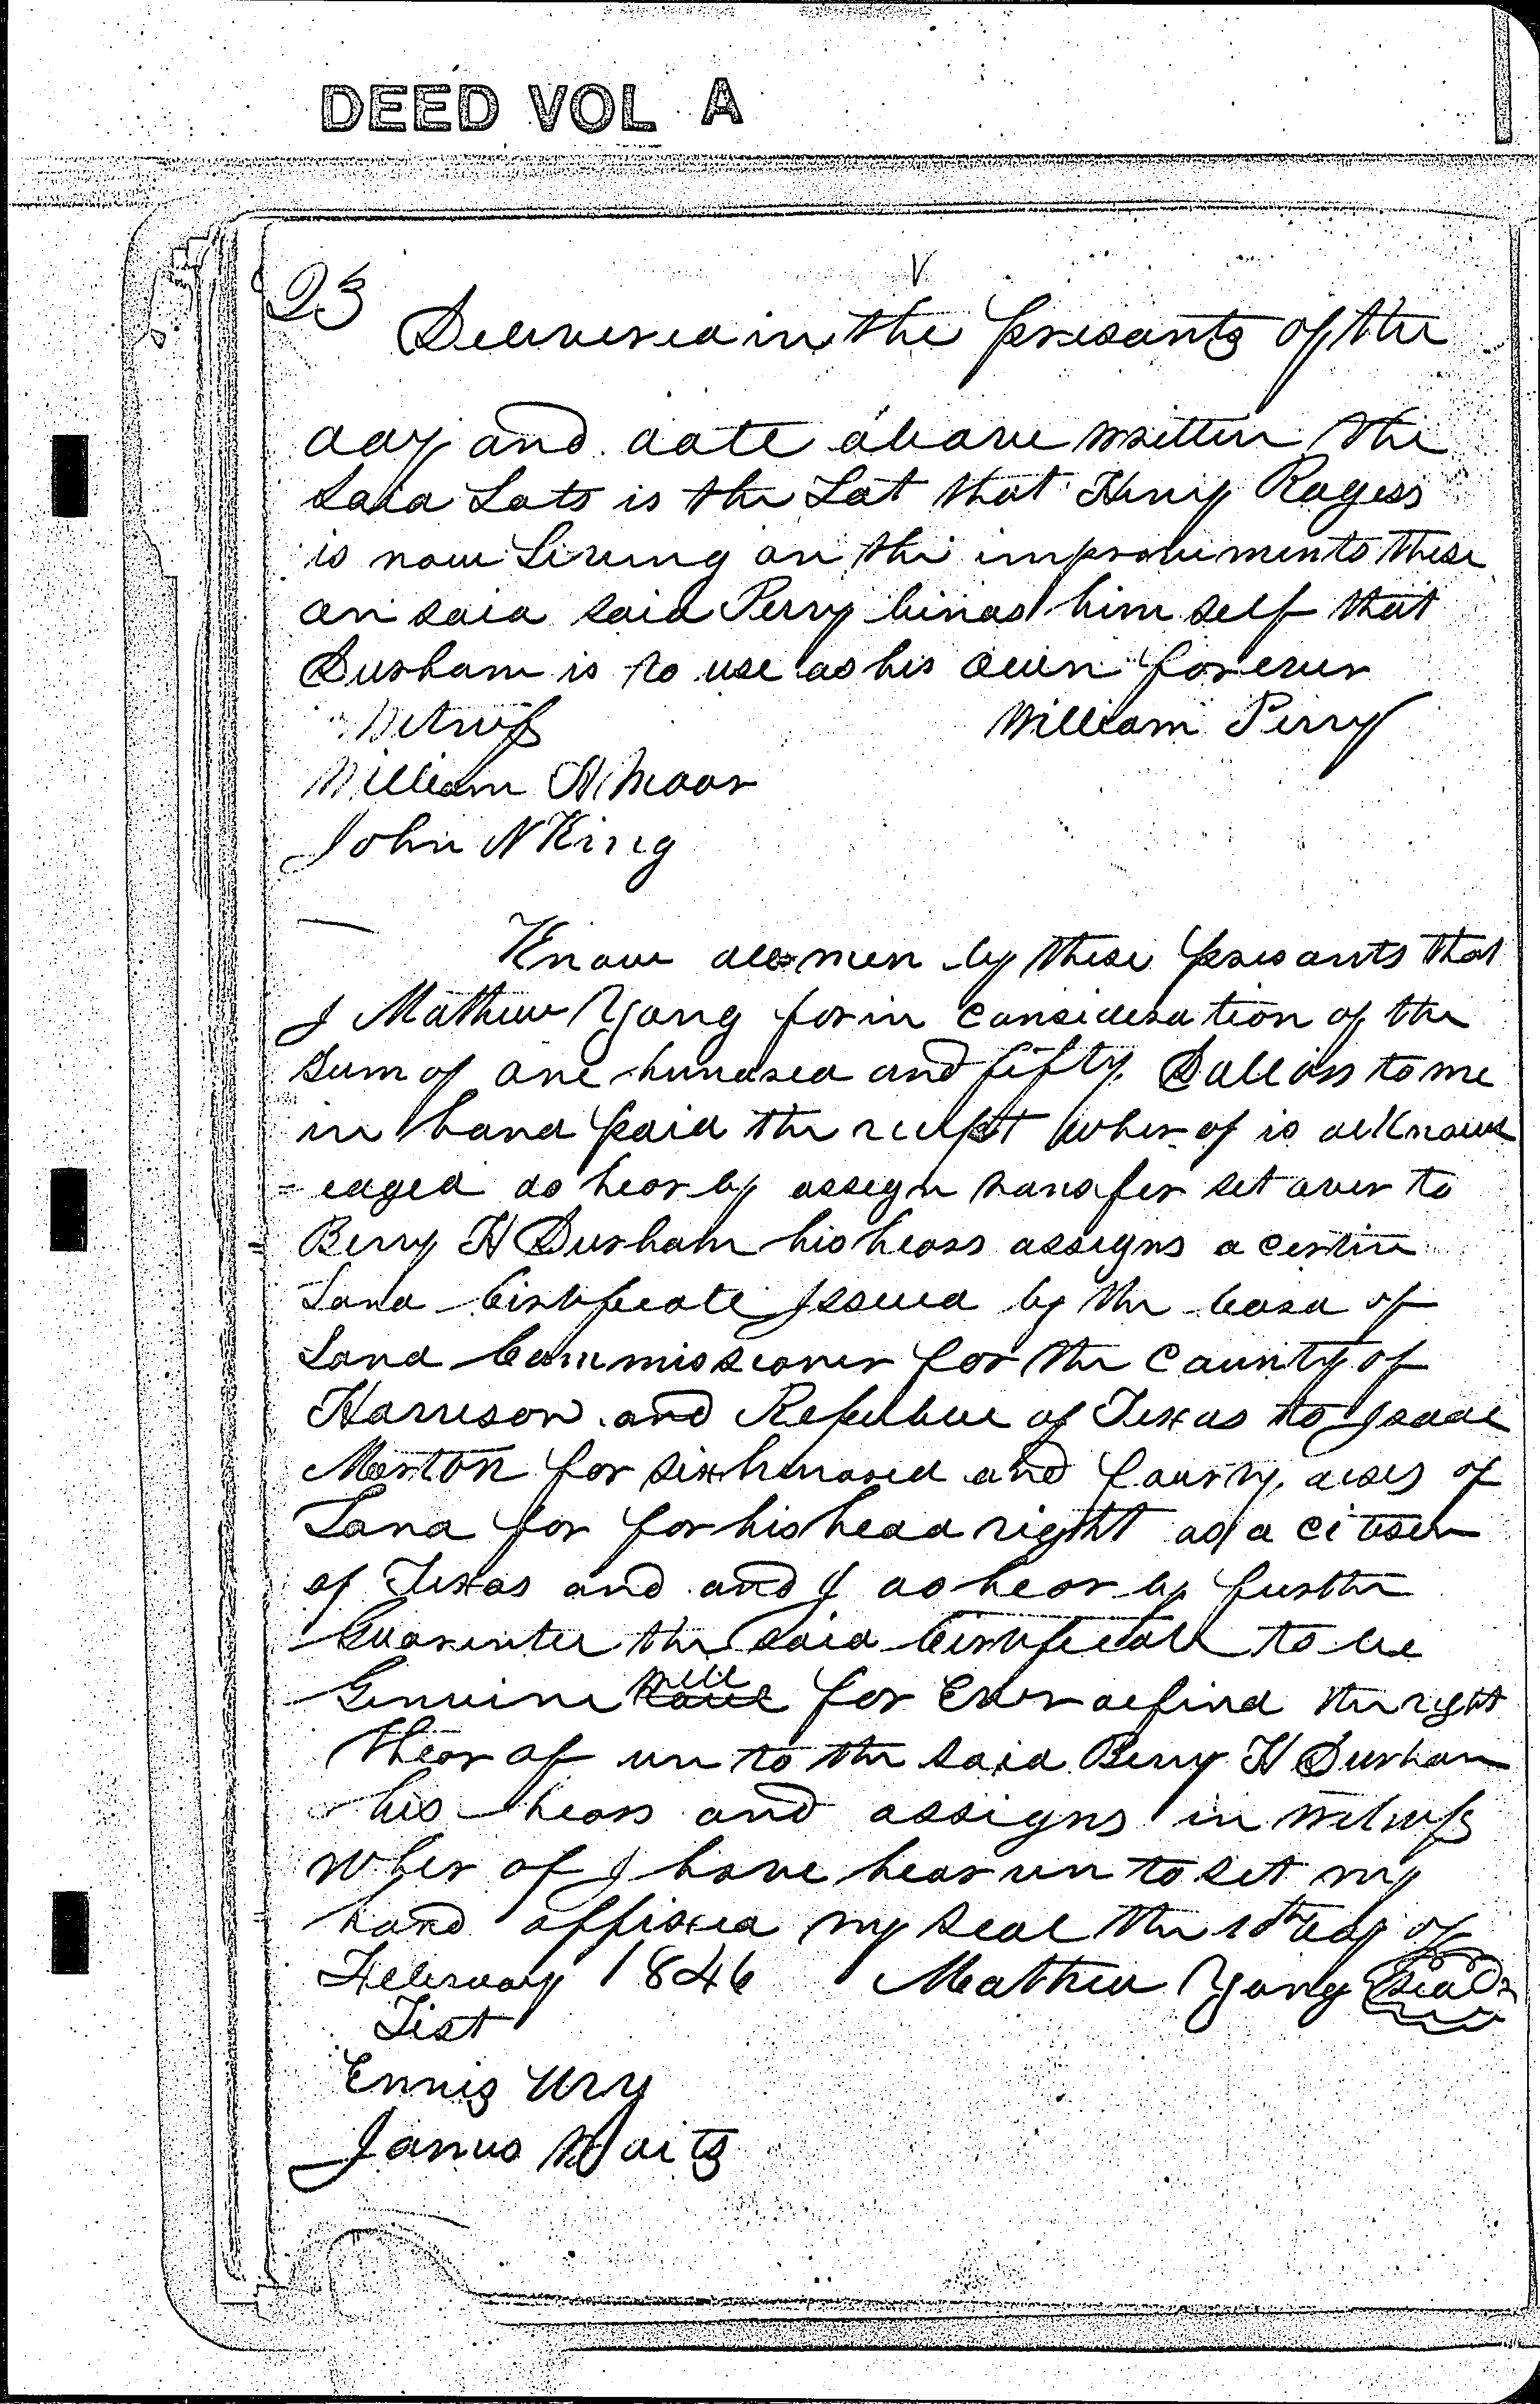 DEED VOL A
23
Delivered in the presants of the
day and date above written the
said Lots is the Lot that Henry Rogers
is now Living on the improvements there
on said said Perry binds him self that
Durham is to use as his own forever
Witness William Perry
William N Moor
John N King
Know all men by these presants that
I Mathew Yong for in consideration of the
Sum of one hundred and fifty Dollars to me
in hand paid the recept wher of is acknowl
edged do hear by assign transfer set over to
Berry H Durham his hears assigns a certin
Land Certificate Issued by the board of
Land Commissioner for the County of
Harrison and Republic of Texas to Isaac
Morton for six hundred and fourty acres of
Land for for his head right as a citasen
of Texas and and I do hear by further
Guarentee the said Certificate to be
Genuine will for Ever defind the right
thear of un to the said Berry H Durham
his hears and assigns in witness
wher of I have hear un to set my
hand affixed my seal the 10th day of
February 1846 Mathew Yong Seal
Test
Ennis Ury
James Waits